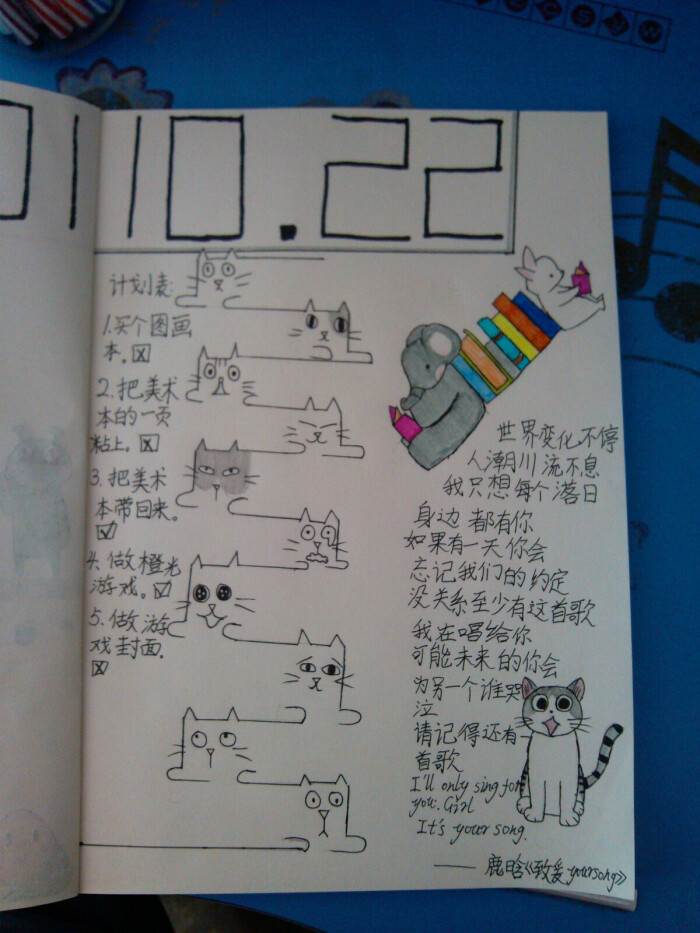 0110.22
计划表:
1.买个图画
本。
2.把美术
本的一页
粘上。
3.把美术
本带回来。
4.做橙光
游戏。
5.做游
戏封面.
世界变化不停
人潮川流不息
我只想每个落日
身边都有你
如果有一天你会
忘记我们的约定
没关系至少有这首歌
我在唱给你
可能未来的你会
为另一个谁哭
泣
请记得还有一
首歌
I'll only sing for
you. Girl
It's your song.
——鹿晗《致爱 your song》